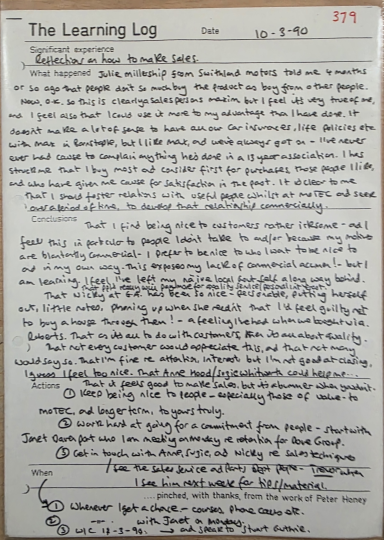 379
The Learning Log Date 10-3-90
Significant experience
Reflections on how to make sales.
What happened Julie Milleship from Swithland motors told me 4 months
or so ago that people don't so much buy the product as buy from other people.
Now, o.k. so this is clearly a salespersons maxim but I feel its very true of me,
and I feel also that I could use it more to my advantage than I have done. It
doesn't make a lot of sense to have all our car insurances, life policies etc
with Max in Dunstable, but I like Max, and we've always got on - I've never
ever had cause to complain anything he's done in a 13 year association. It has
struck me that I buy most and consider first for purchases those people I like,
and who have given me cause for satisfaction in the past. It is clear to me
that I should foster relations with useful people whilst at MOTEC and seek
over a period of time, to develop that relationship commercially.
Conclusions That I find being nice to customers rather irksome - and I
feel this in particular to people I don't take to and/or because my motives
are blatantly commercial - I prefer to be nice to who I want to be nice to
and in my own way. This exposes my lack of commercial acumen! - but I
am learning. I feel I've left my naive local self along way behind.
That Nicky at G.A. has been so nice - personable, putting herself
out, little notes, phoning up when she reddit that I'd feel guilty not
to buy a house through them! - a feeling I've had when we bought via
Roberts. That as do all to do with customers, then its all about quality.
That not every customer would appreciate this, and that not many
would say so. That I'm fine re attention, interest but I'm not good at closing,
I guess I feel too. That Anne Hood/Susie Whitworth could help me...
Actions That it feels good to make sales, but its a bummer when you don't.
① Keep being nice to people - especially those of value - to
MOTEC, and longer term, to yours truly.
② Work hard at going for a commitment from people - start with
Janet Davenport who I am meeting on Monday re retention for Dove Group.
③ Get in touch with Anne, Susie, and Nicky re sales techniques
/ see the Sales Service and Parts Dept people - Trevor when
When I see him next week for tips/material.
.... pinched, with thanks, from the work of Peter Honey
① Whenever I get a chance - courses, phone calls etc.
② with Janet on Monday.
③ W/C 12-3-90. → and speak to Stuart Guthrie.